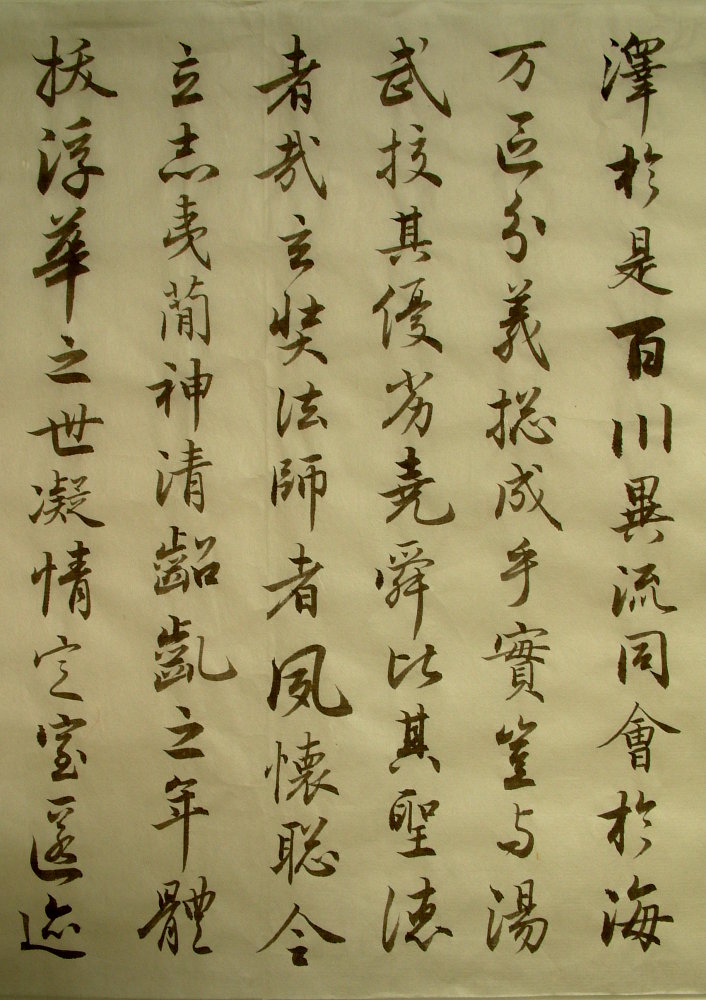 澤於是百川異流同會於海
万區分義揔成乎實豈与湯
武挍其優劣堯舜比其聖德
者哉玄奘法師者夙懷聡令
立志夷簡神清齠齓之年體
拔浮華之世凝情定室匿迹